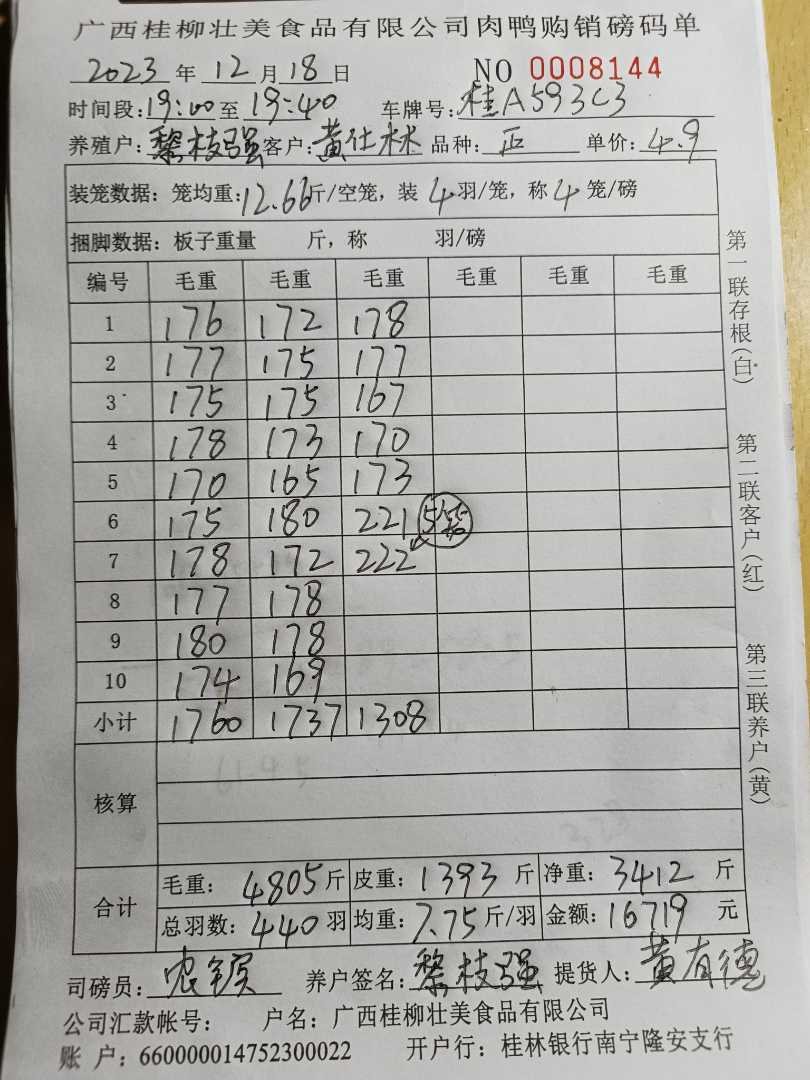 广西桂柳壮美食品有限公司肉鸭购销磅码单
2023年12月18日 NO 0008144
时间段:19:00至19:40 车牌号:桂A593C3
养殖户:黎枝强 客户:黄仕林 品种:正 单价:4.9
装笼数据:笼均重:12.66斤/空笼,装4羽/笼,称4笼/磅
捆脚数据:板子重量 斤,称 羽/磅
编号 毛重 毛重 毛重 毛重 毛重 毛重
1 176 172 178
2 177 175 177
3 175 175 167
4 178 173 170
5 170 165 173
6 175 180 221 5笼
7 178 172 222
8 177 178
9 180 178
10 174 169
小计 1760 1737 1308
核算
合计 毛重:4805斤 皮重:1393斤 净重:3412斤
总羽数:440羽 均重:7.75斤/羽 金额:16719元
司磅员: 养户签名:黎枝强 提货人:黄有德
公司汇款帐号: 户名:广西桂柳壮美食品有限公司
账 户:660000014752300022 开户行:桂林银行南宁隆安支行
第一联存根(白)
第二联客户(红)
第三联养户(黄)